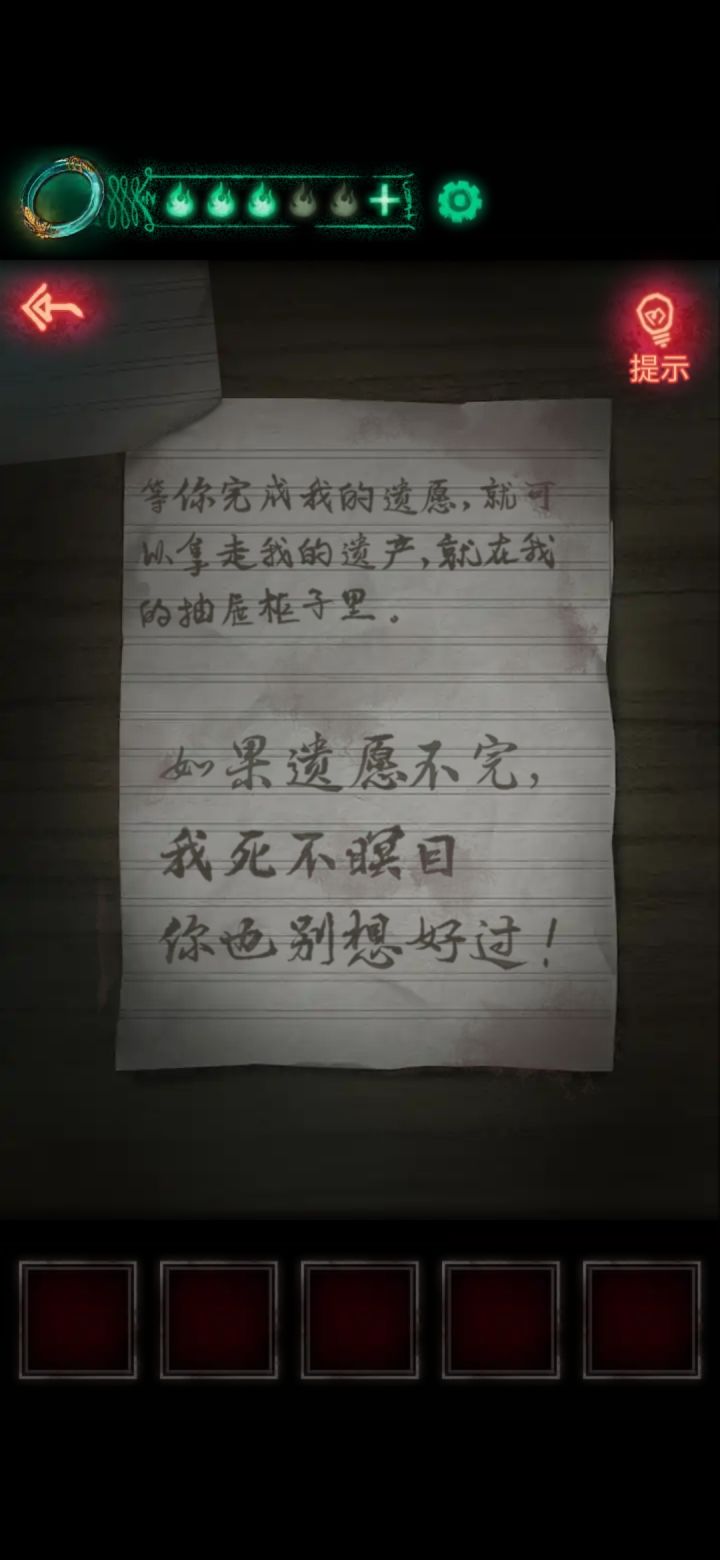 提示
等你完成我的遗愿，就可
以拿走我的遗产，就在我
的抽屉柜子里。
如果遗愿不完，
我死不瞑目
你也别想好过！